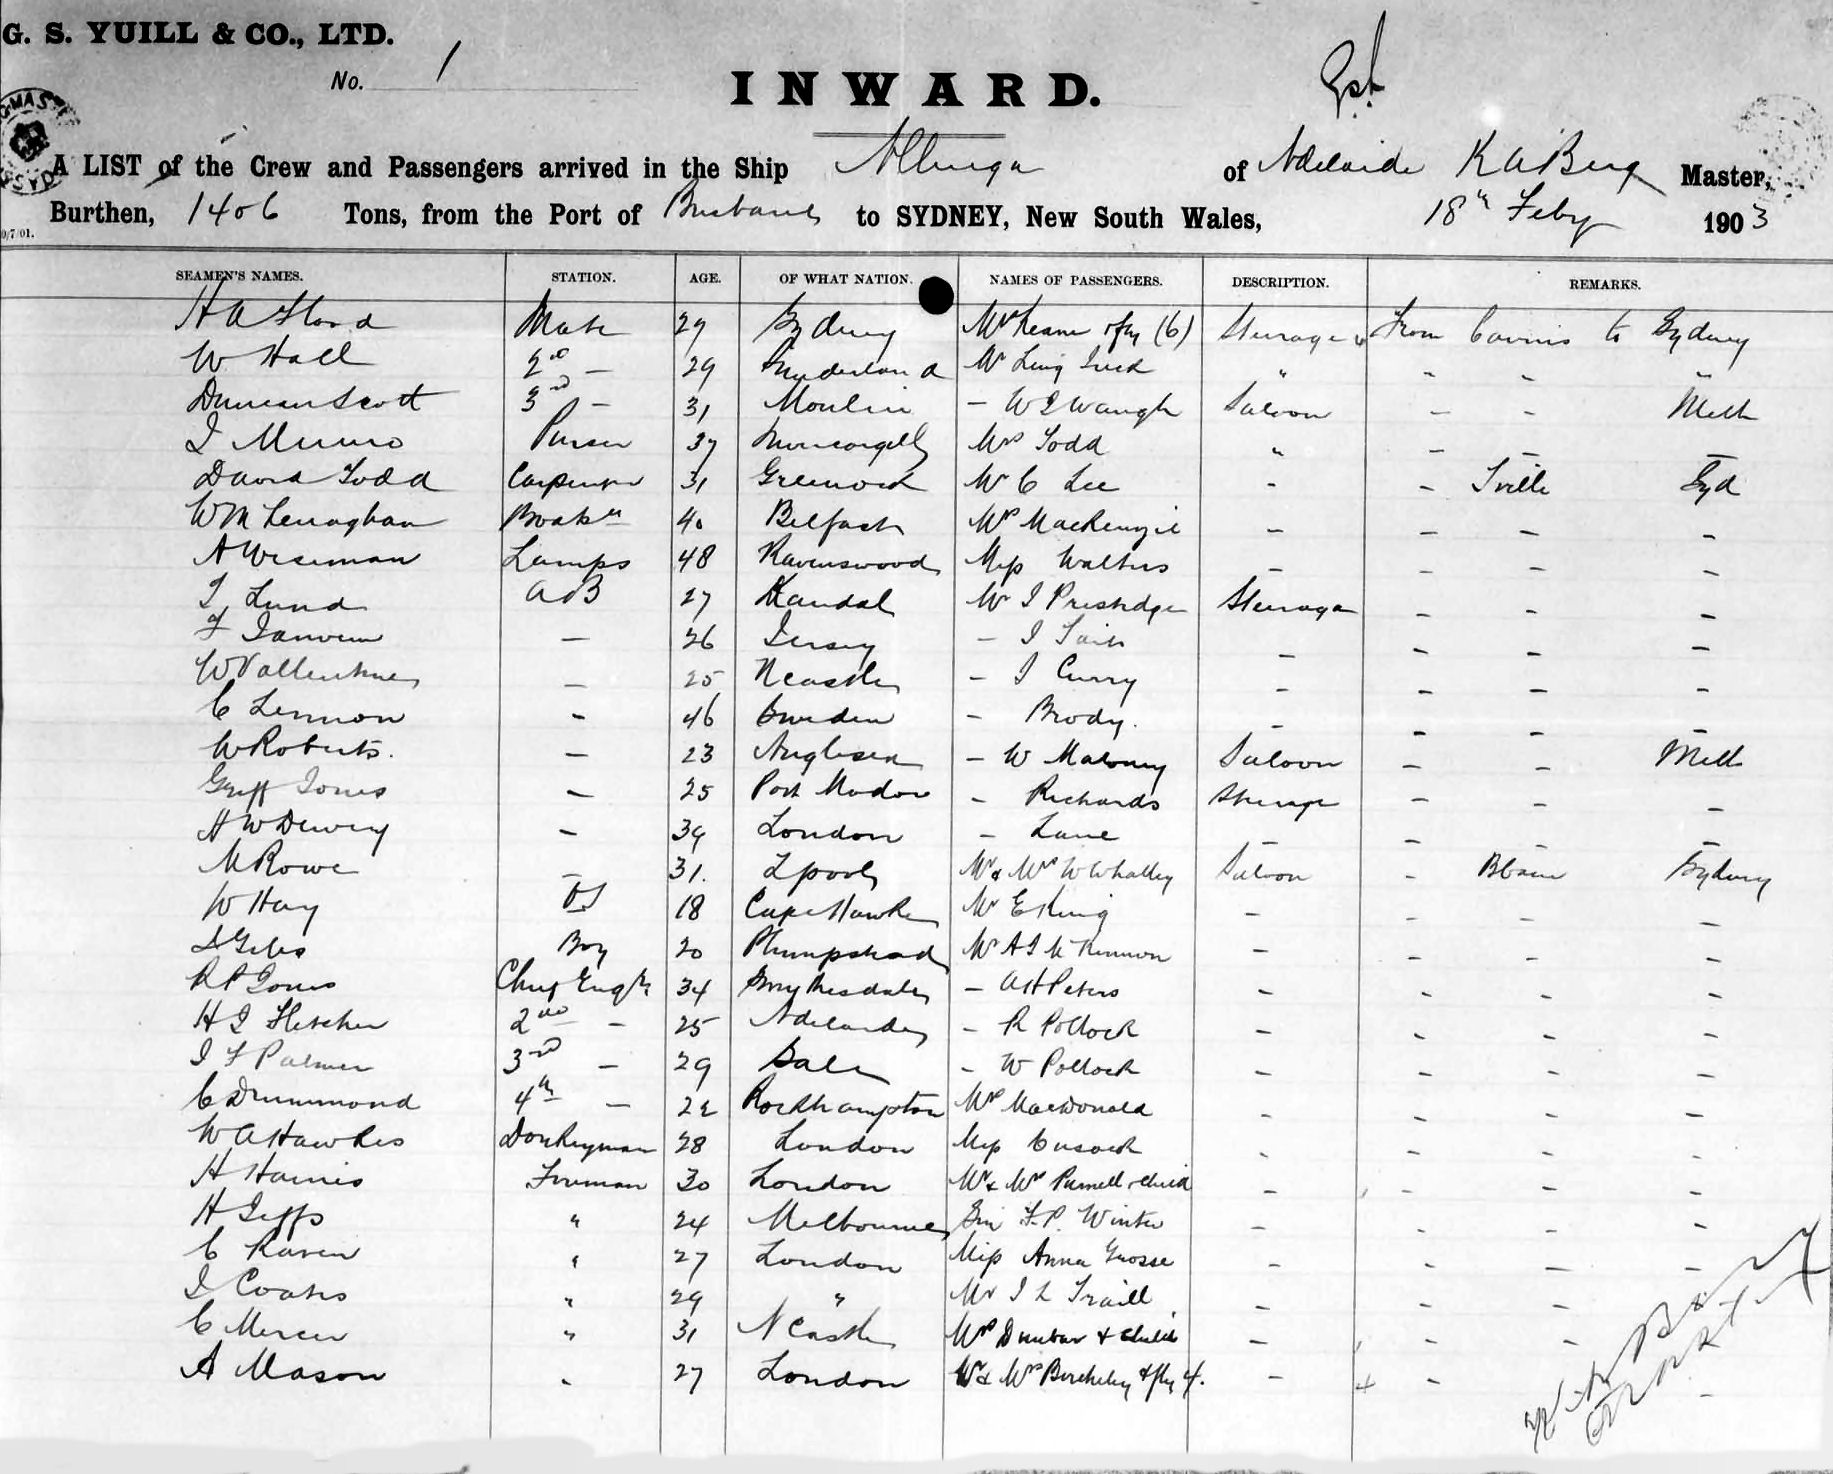 G. S. YUILL & CO., LTD.
No. 1
INWARD.
A LIST of the Crew and Passengers arrived in the Ship of Adelaide K A Berg Master,
Burthen, 1406 Tons, from the Port of Brisbane to SYDNEY, New South Wales, 18th Feby 1903
0/7/01.
SEAMEN'S NAMES. STATION. AGE. OF WHAT NATION. NAMES OF PASSENGERS. DESCRIPTION. REMARKS.
H A Mate 29 Sydney Mr Keane & fy (6) Steerage From to Sydney
W Hall 2nd — 29 Sunderland Mr " " " "
Duncan Scott 3rd — 31 Moulin — W Waugh Saloon — — Melb
J Munro Purser 37 Mrs Todd " — — —
David Todd Carpenter 31 Greenock Mr C Lee - — Tville Syd
Wm Lenaghan 40 Belfast Mrs MacKenzie — — — —
A Wiseman Lamps 48 Ravenswood Miss Walters — — — —
J Lund A B 27 Kandal Mr J Prestidge Steerage — — —
F — 26 Jersey — J — — — —
W — 25 Ncastle — J Curry — — — —
C Lennon - 46 Sweden — Brody. — — — —
W Roberts. — 23 Anglesea — W Maloney Saloon — — Melb
Griff Jones — 25 Port Madoc — Richards Steerage — — —
H W Dewey — 39 London — Lane — — — —
M Rowe — 31. Lpool Mr & Mrs W Whalley Saloon — Bbane Sydney
W Hay OS 18 Cape Hawke Mr E King — — — —
Giles Boy 20 Plumpstead Mr A J McKinnon — — — —
R P Jones Chief Engr 34 — A H Peters — — — —
H J Fletcher 2nd — 25 Adelaide — R Pollock — — — —
J F Palmer 3rd — 29 Sale — W Pollock — — — —
C Drummond 4th — 22 Rockhampton Mrs MacDonald — — — —
W A Hawkes Donkeyman 28 London Miss Cusack - - — —
H Harris Fireman 30 London Mr & Mrs Purnell & child — — — —
H Jeffs " 24 Melbourne Sir F. P. Winter — — — —
C Raven " 27 London Miss Anna Grosse — — — —
J Coates " 29 " Mr J L Traill — — —
C Mercer " 31 N Castle Mrs Dunbar & child — — —
A Mason " 27 London Mr & Mrs Berkeley & fy 4. — — —